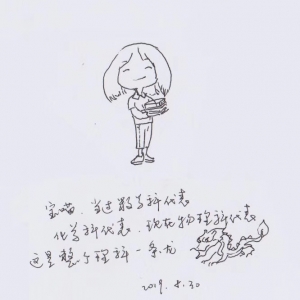 宝喵，当过数学科代表
化学科代表，现在物理科代表
这是整个理科一条龙
2019.8.30